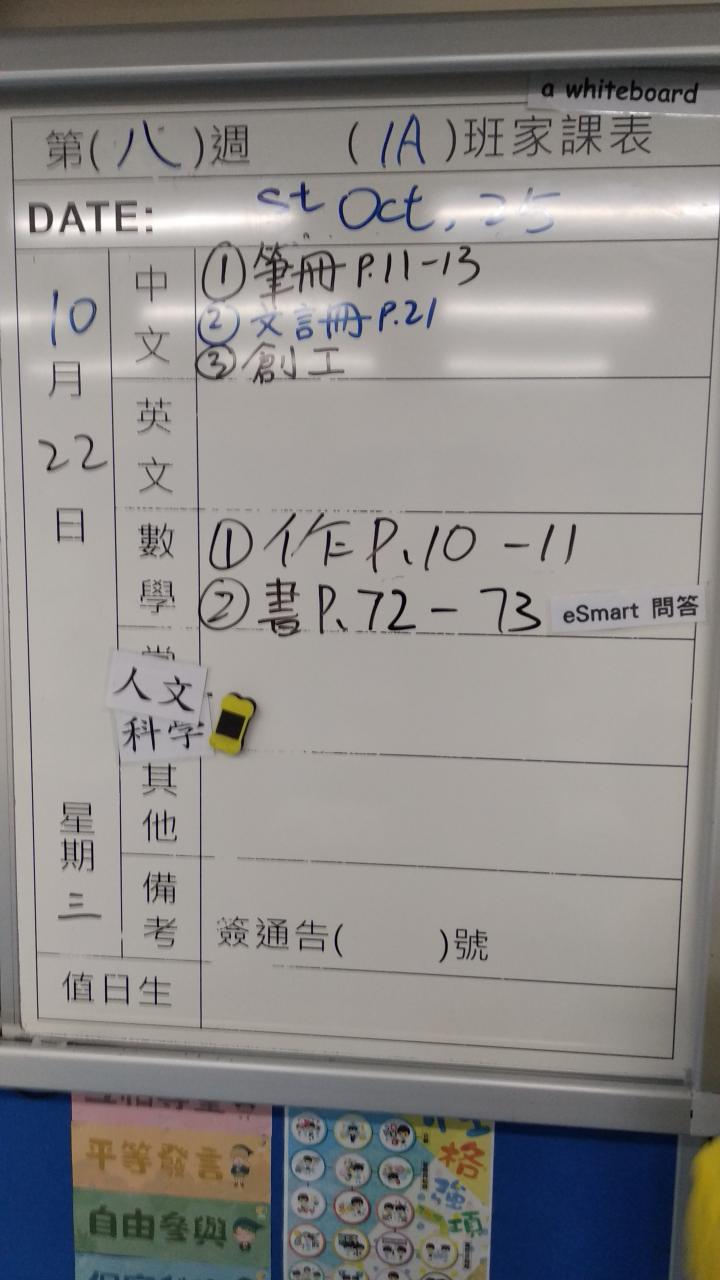 a whiteboard
第(八)週 (1A)班家課表
DATE: st Oct, 25
10月22日
星期三
中文
①筆冊P.11-13
②文言冊P.21
③創工
英文
數學
①作P.10-11
②書P.72-73 eSmart 問答
人文
科学
其他
備考
簽通告( )號
值日生
平等發言
自由參與
格
強
項